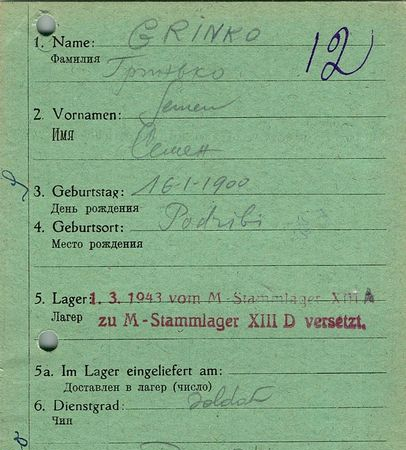 1. Name: GRINKO
Фамилия Гринько
12
2. Vornamen: Semen
Имя Семен
3. Geburtstag: 16-1-1900
День рождения
4. Geburtsort: Podzibi
Место рождения
5. Lager 1. 3. 1943 vom M-Stammlager XIII A
Лагер zu M-Stammlager XIII D versetzt.
5a. Im Lager eingeliefert am:
Доставлен в лагер (число)
6. Dienstgrad: Soldat
Чин